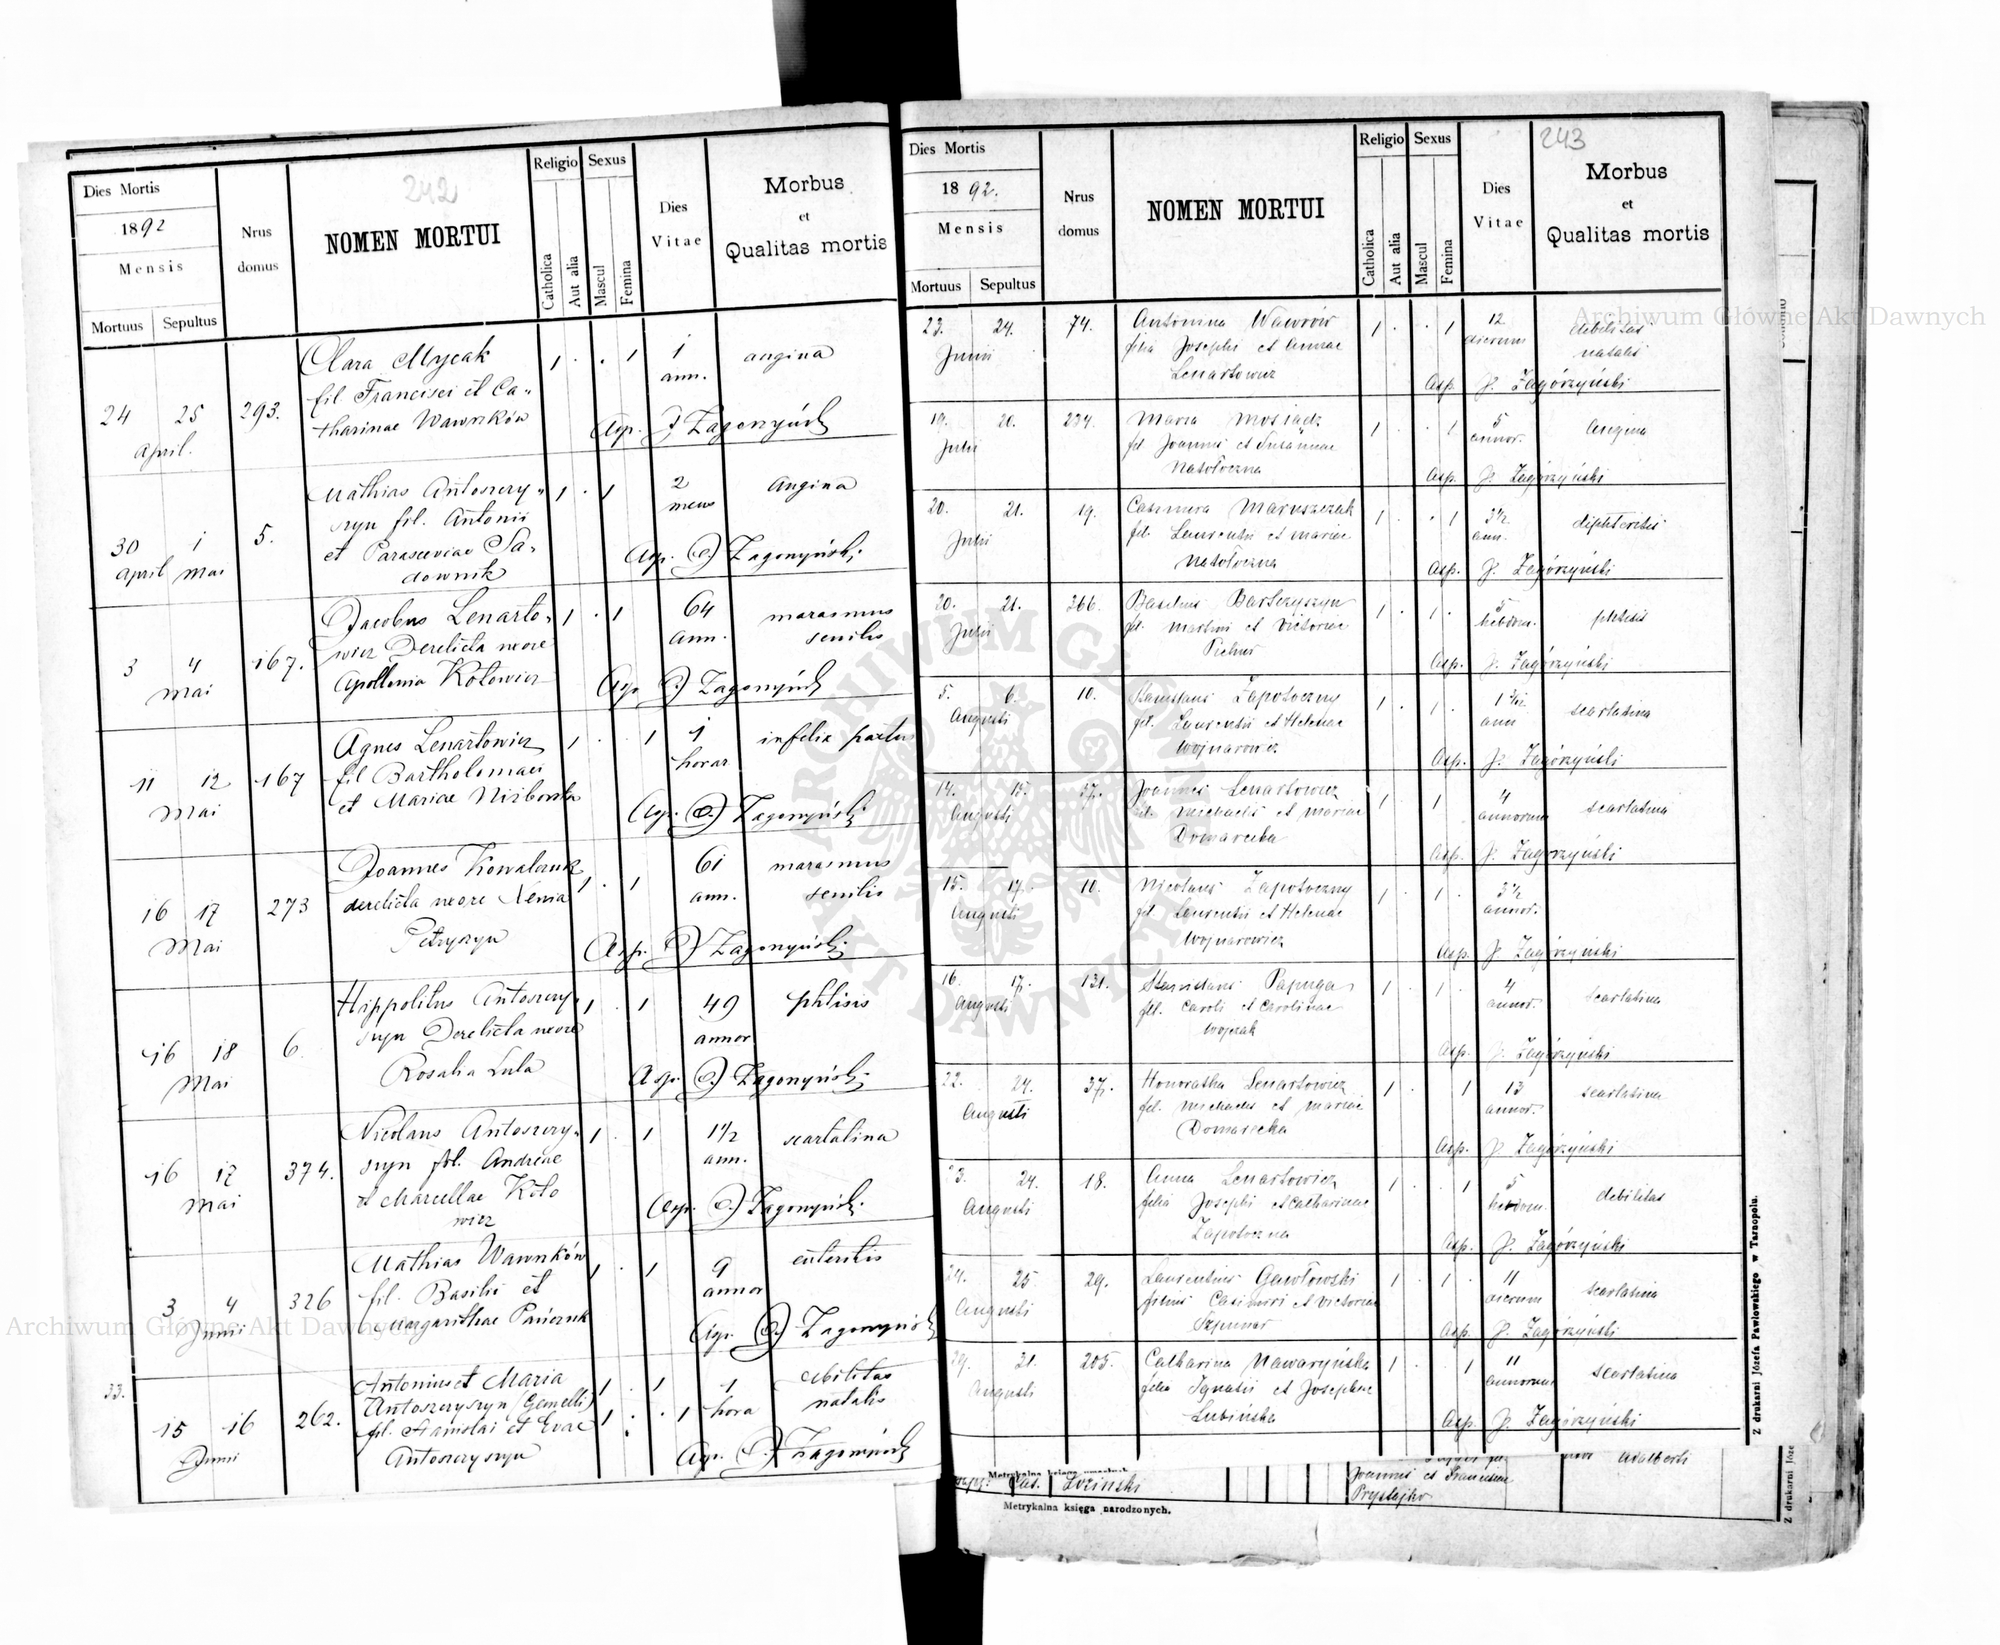 242
Dies Mortis
1892
Mensis
Mortuus Sepultus
Nrus
domus
NOMEN MORTUI
Religio
Catholica
Aut alia
Sexus
Mascul
Femina
Dies
Vitae
Morbus
et
Qualitas mortis
24 25 293. Clara Mycak 1 . . 1 1 angina
April. fil Francisci et Ca- ann.
tharinae Wawryków Asp.
30 1 5. Mathias Antoszczy- 1 . 1 2 Angina
April Mai szyn fil. Antonii mens
et Parasceviae Sa- Asp.
downik
3 4 167. Jacobus Lenarto- 1 . 1 64 marasmus
Mai wicz Derelicta uxore ann. senilis
Apollonia Kotowicz Asp.
11 12 167 Agnes Lenartowicz 1 . . 1 1 infelix partus
Mai fil Bartholomaei horae
et Mariae Asp.
16 17 273 Joannes Kowalczuk 1 . 1 61 marasmus
Mai derelicta uxore Xenia ann. senilis
Petryszyn Asp.
16 18 6. Hippolitus Antoszczy- 1 . 1 49 phtisis
Mai szyn Derelicta uxore annor
Rosalia Lula Asp.
16 17 374. Nicolaus Antoszczy- 1 . 1 1 1/2 scarlatina
Mai szyn fil. Andreae ann.
et Marcellae Koto Asp.
wicz
3 4 326 Mathias Wawryków 1 . 1 9 enteritis
Junii fil. Basilii et annor
Margarithae Pańczuk Asp.
33. 15 16 262. Antonius et Maria 1 . 1 1 debilitas
Junii Antoszczyszyn (Gemelli) 1 . . 1 hora natalis
fil. Stanislai et Evae
Antoszczyszyn Asp.
243
Dies Mortis
1892.
Mensis
Mortuus Sepultus
Nrus
domus
NOMEN MORTUI
Religio
Catholica
Aut alia
Sexus
Mascul
Femina
Dies
Vitae
Morbus
et
Qualitas mortis
23. 24. 74. Antonina Wawrów 1 . . 1 12 debilitas
Junii filia Josephi et Annae dierum natalis
Lenartowicz Asp. J. Zagórzyński
19. 20. 234. Maria Mosiądz 1 . . 1 5 Angina
Julii fil Joannis et Susannae annor.
Natołoczna Asp. J. Zagórzyński
20. 21. 19. Casimira Maruszczak 1 . . 1 3 1/2 diphteritis
Julii fil. Laurentii et Mariae ann.
Natołoczna Asp. J. Zagórzyński
20. 21. 266. Basilius Bartczyszyn 1 . 1 . 5 phtisis
Julii fil. Martini et Victoriae hebdom.
Asp. J. Zagórzyński
5. 6. 10. Stanislaus Zapotoczny 1 . 1 . scarlatina
Augusti fil. Laurentii et Helenae ann
Wojnarowicz Asp. J. Zagórzyński
14. 15. 37. Joannes Lenartowicz 1 . 1 4 scarlatina
Augusti fil. Michaelis et Mariae annorum
Domarecka Asp. J. Zagórzyński
15. 17. 10. Nicolaus Zapotoczny 1 . 1 . 3 1/2
Augusti fil. Laurentii et Helenae annor.
Wojnarowicz Asp. J. Zagórzyński
16. 17. 131. Stanislaus Papuga 1 . 1 . 4 scarlatina
Augusti fil. Caroli et Carolinae annor.
Wojczak Asp. J. Zagórzyński
22. 24. 37. Honoratha Lenartowicz 1 . 1 13 scarlatina
Augusti fil. Michaelis et Mariae annor.
Domarecka Asp. J. Zagórzyński
23. 24. 18. Anna Lenartowicz 1 . . 1 5 debilitas
Augusti filia Josephi et Catharinae hebdom.
Zapotoczna Asp. J. Zagórzyński
24. 25 29. Laurentius Gawłowski 1 . 1 . 11 scarlatina
Augusti filius Casimiri et Victoriae dierum
Szpunar Asp. J. Zagórzyński
29. 31. 205. Catharina Nawaryńska 1 . . 1 11 scarlatina
Augusti filia Ignatii et Josephae annorum
Lubińska Asp. J. Zagórzyński
Z drukarni Józefa Pawłowskiego w Tarnopolu.
Łoziński
Joannis et Franciscae
Prystajko
Adalberti
Metrykalna księga narodzonych.
Z drukarni Józe
Archiwum Główne Akt Dawnych
Archiwum Główne Akt Dawnych
ARCHIWUM GŁÓWNE AKT DAWNYCH